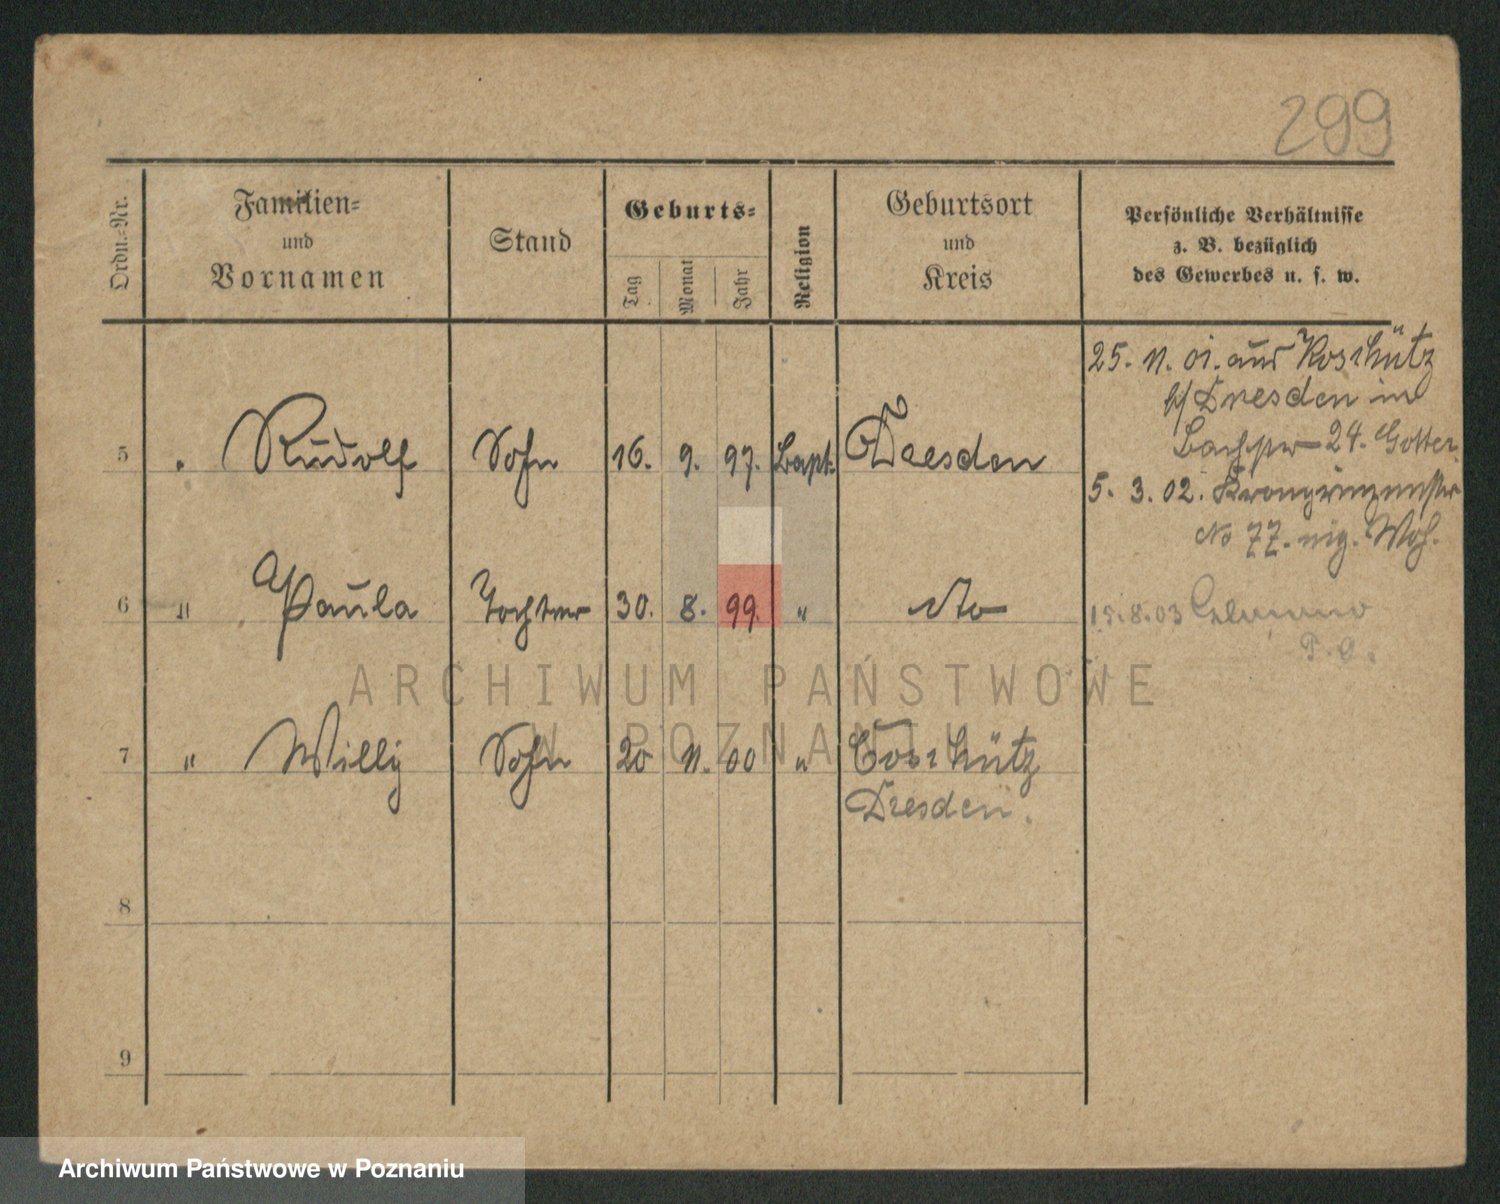 299
Ordn.-Nr.
Familien-
und
Vornamen
Stand
Geburts-
Tag
Monat
Jahr
Religion
Geburtsort
und
Kreis
Persönliche Verhältnisse
z. B. bezüglich
des Gewerbes u. s. w.
25. 11. 01. aus Koschütz
b/ Dresden in
24. Gotter
5 " Rudolf Sohn 16. 9. 97. Bapt. Dresden
5. 3. 02. Kronprinzenstr
No 77. eig. Woh.
6 " Paula Tochter 30. 8. 99. " dto
15.8.03
7 " Willy Sohn 20 11. 00 " Coschütz
Dresden.
8
9
ARCHIWUM PAŃSTWOWE
W POZNANIU
Archiwum Państwowe w Poznaniu